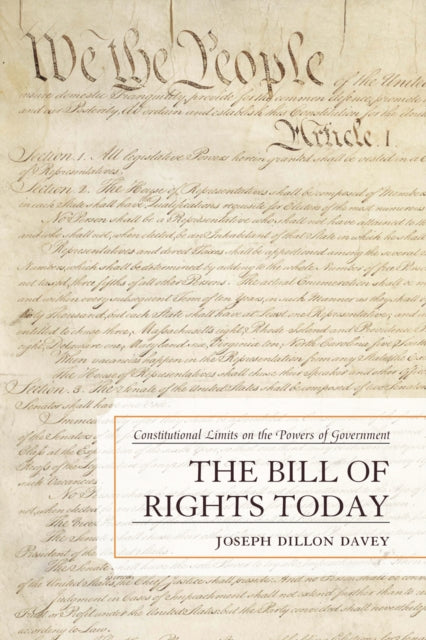 We the People
of the United
insure domestic Tranquility, provide for the common defence, promote
and our Posterity, do ordain and establish this Constitution for the
Article. I.
Section. 1. All legislative Powers herein granted shall be vested in a
of Representatives.
Section. 2. The House of Representatives shall be composed of Members
in each State shall have the Qualifications requisite for Electors of the most numerous
No Person shall be a Representative who shall not have attained to
and who shall not, when elected, be an Inhabitant of that State in which he shall
Representatives and direct Taxes shall be apportioned among the several
Numbers, which shall be determined by adding to the whole Number of free
not taxed, three fifths of all other Persons. The actual Enumeration shall be
and within every subsequent Term of ten Years, in such Manner as they shall
thirty Thousand, but each State shall have at Least one Representative; and
entitled to chuse three, Massachusetts eight, Rhode Island and Providence
eight, Delaware one, Maryland six, Virginia ten, North Carolina five,
When vacancies happen in the Representation from any State, the
The House of Representatives shall chuse their Speaker and other
Section. 3. The Senate of the United States shall be composed of two
Senator shall have one
Constitutional Limits on the Powers of Government
THE BILL OF
RIGHTS TODAY
JOSEPH DILLON DAVEY
of the United States, the Chief Justice shall preside: And no
Judgment in Cases of Impeachment shall not extend further than
under the United States: but the Party convicted shall
according to Law.